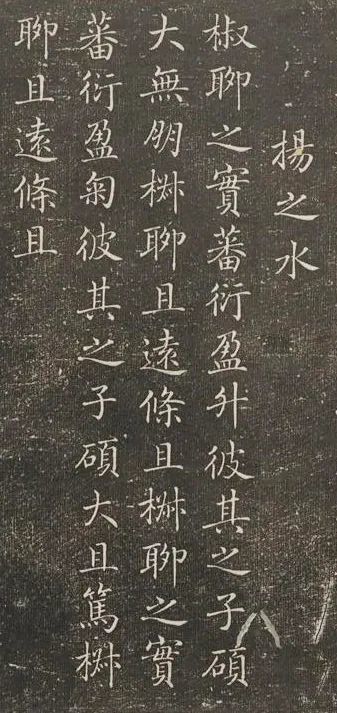 揚之水
椒聊之實蕃衍盈升彼其之子碩
大無朋椒聊且遠條且椒聊之實
蕃衍盈匊彼其之子碩大且篤椒
聊且遠條且